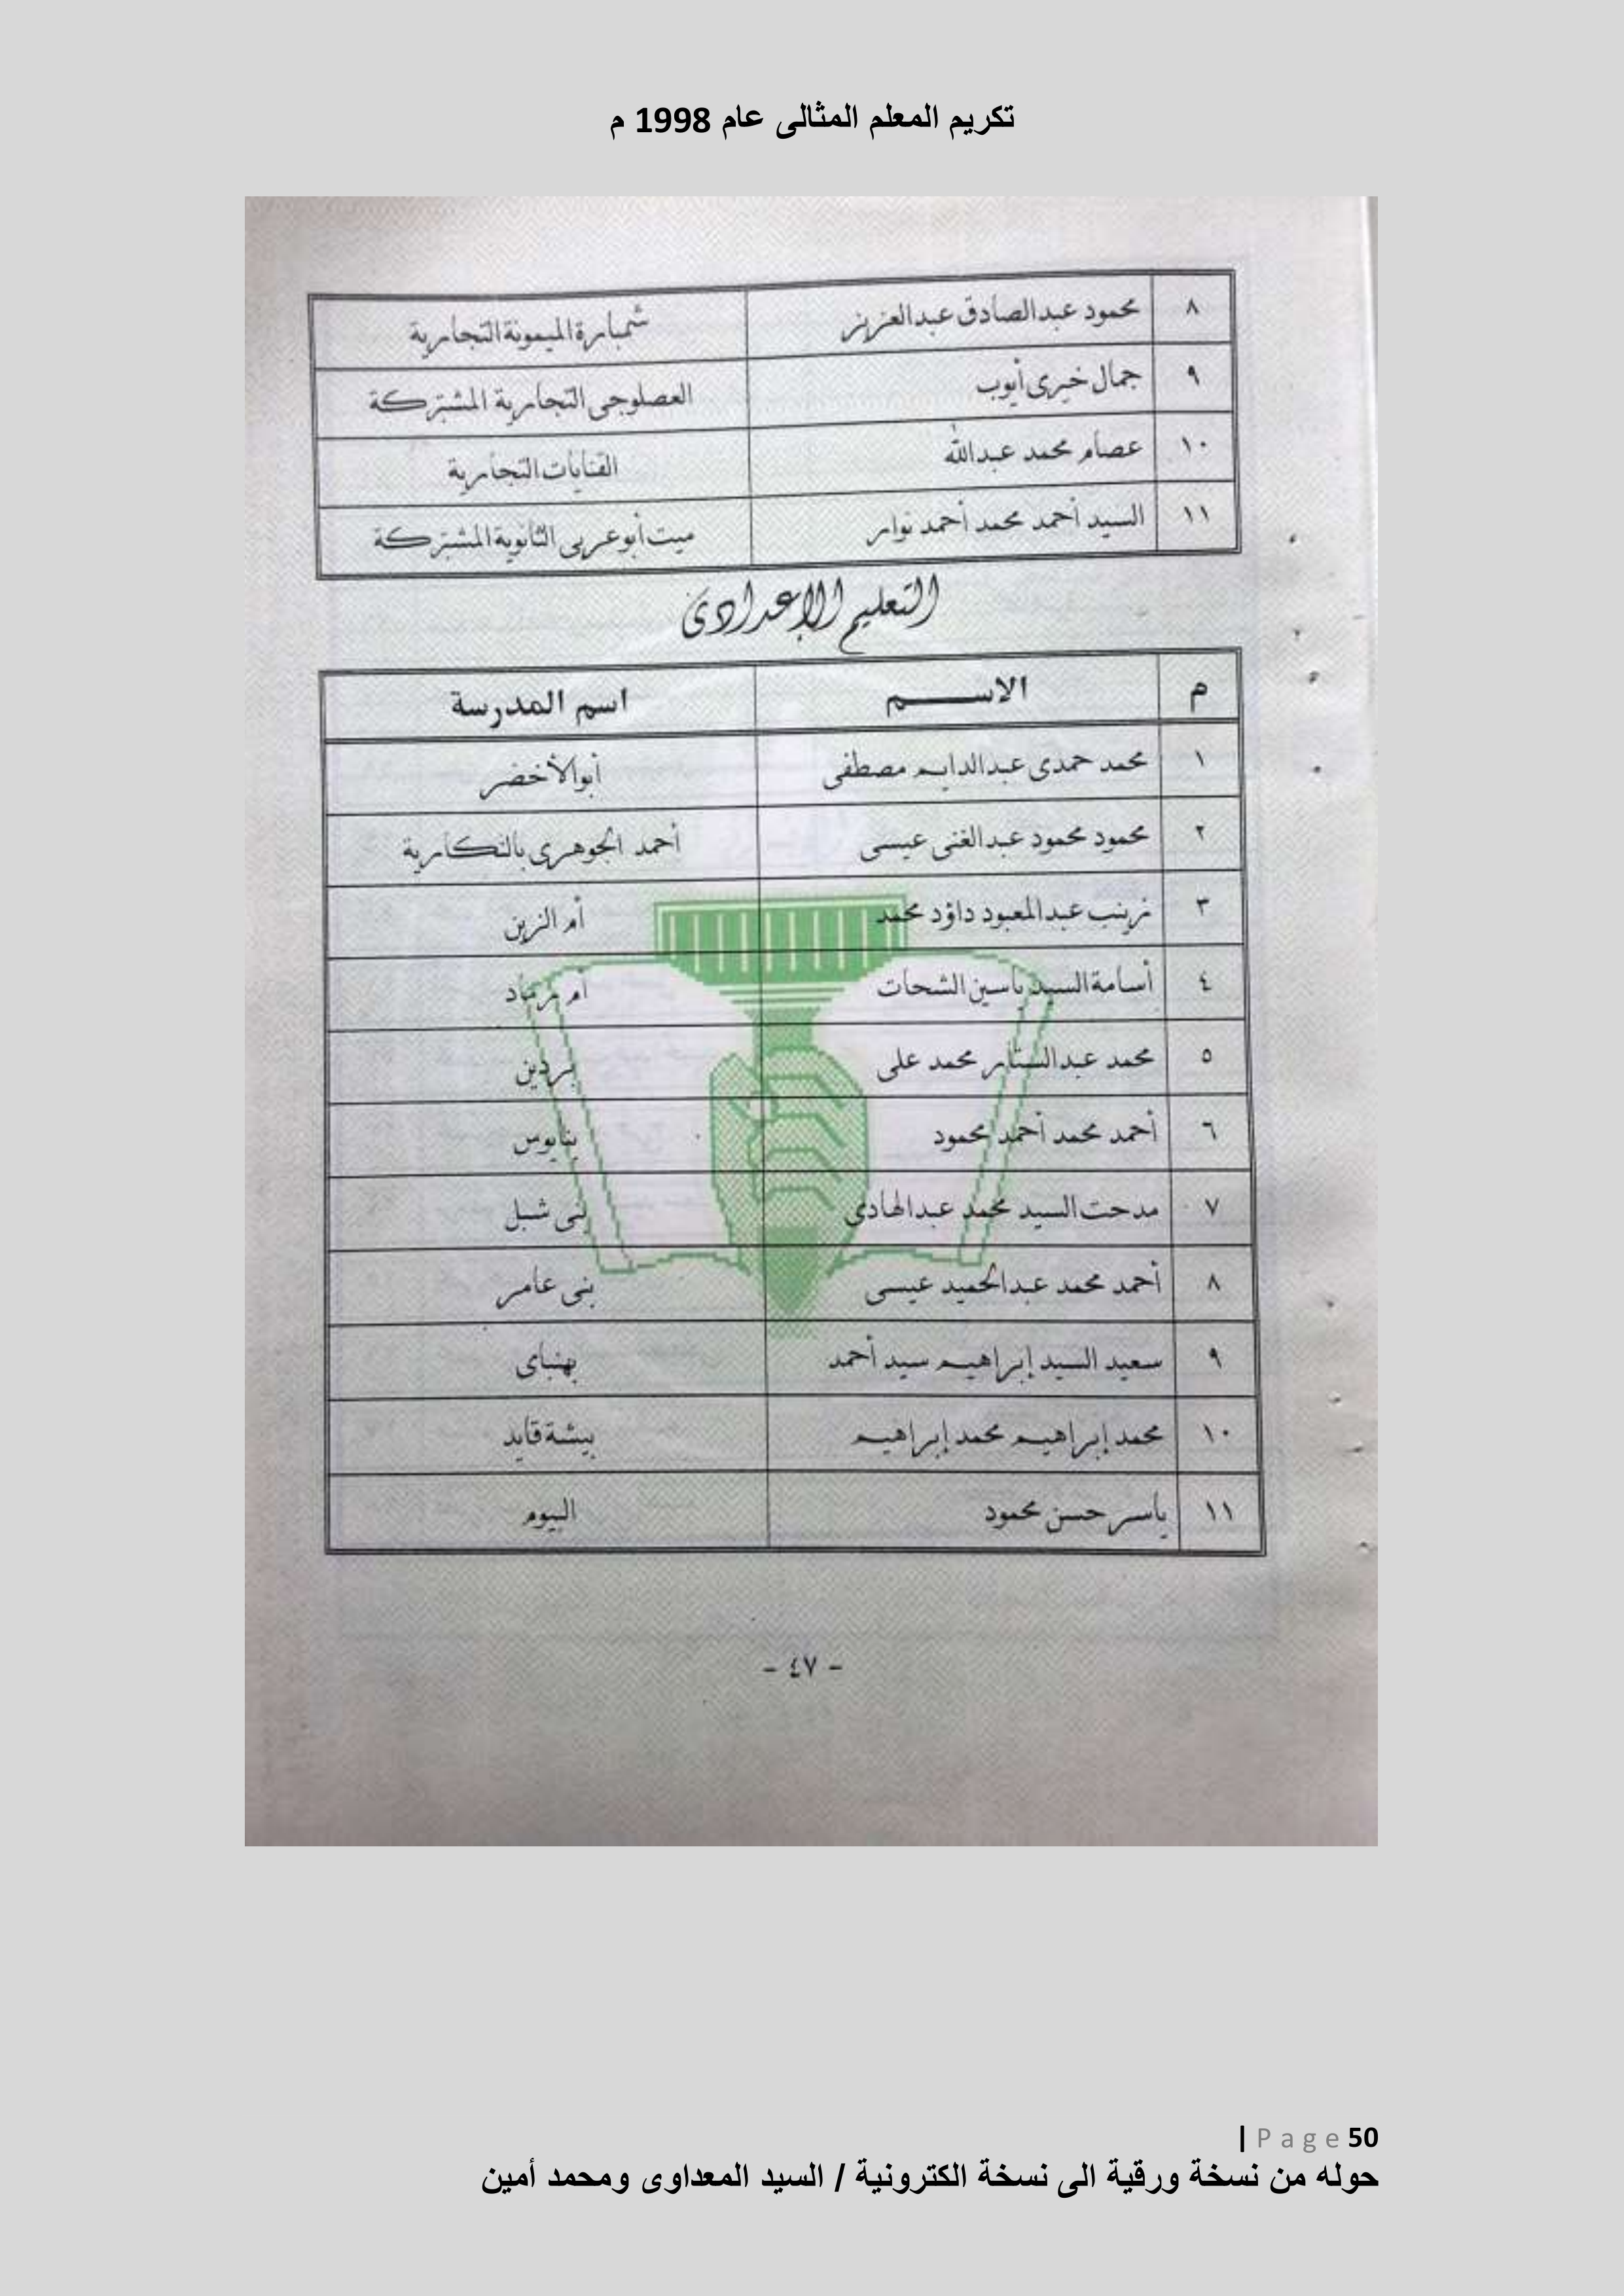 تكريم المعلم المثالى عام 1998 م
٨ محمود عبدالصادق عبدالعزيز شمبارة الميمونة التجارية
٩ جمال خيرى أيوب العصلوجى التجارية المشتركة
١٠ عصام محمد عبدالله القنايات التجارية
١١ السيد أحمد محمد أحمد نوار ميت أبو عربى الثانوية المشتركة
التعليم الإعدادى
م الاســـم اسم المدرسة
١ محمد حمدى عبدالدايم مصطفى أبو الأخضر
٢ محمود محمود عبدالغنى عيسى أحمد الجوهرى بالنكارية
٣ زينب عبدالمعبود داؤد محمد أم الزين
٤ أسامة السيد ياسين الشحات أم رماد
٥ محمد عبدالستار محمد على بردين
٦ أحمد محمد أحمد محمود بنايوس
٧ مدحت السيد محمد عبدالهادى بنى شبل
٨ أحمد محمد عبدالحميد عيسى بنى عامر
٩ سعيد السيد إبراهيم سيد أحمد بهنباى
١٠ محمد إبراهيم محمد إبراهيم بيشة قايد
١١ ياسر حسن محمود البيوم
- ٤٧ -
| Page 50
حوله من نسخة ورقية الى نسخة الكترونية / السيد المعداوى ومحمد أمين